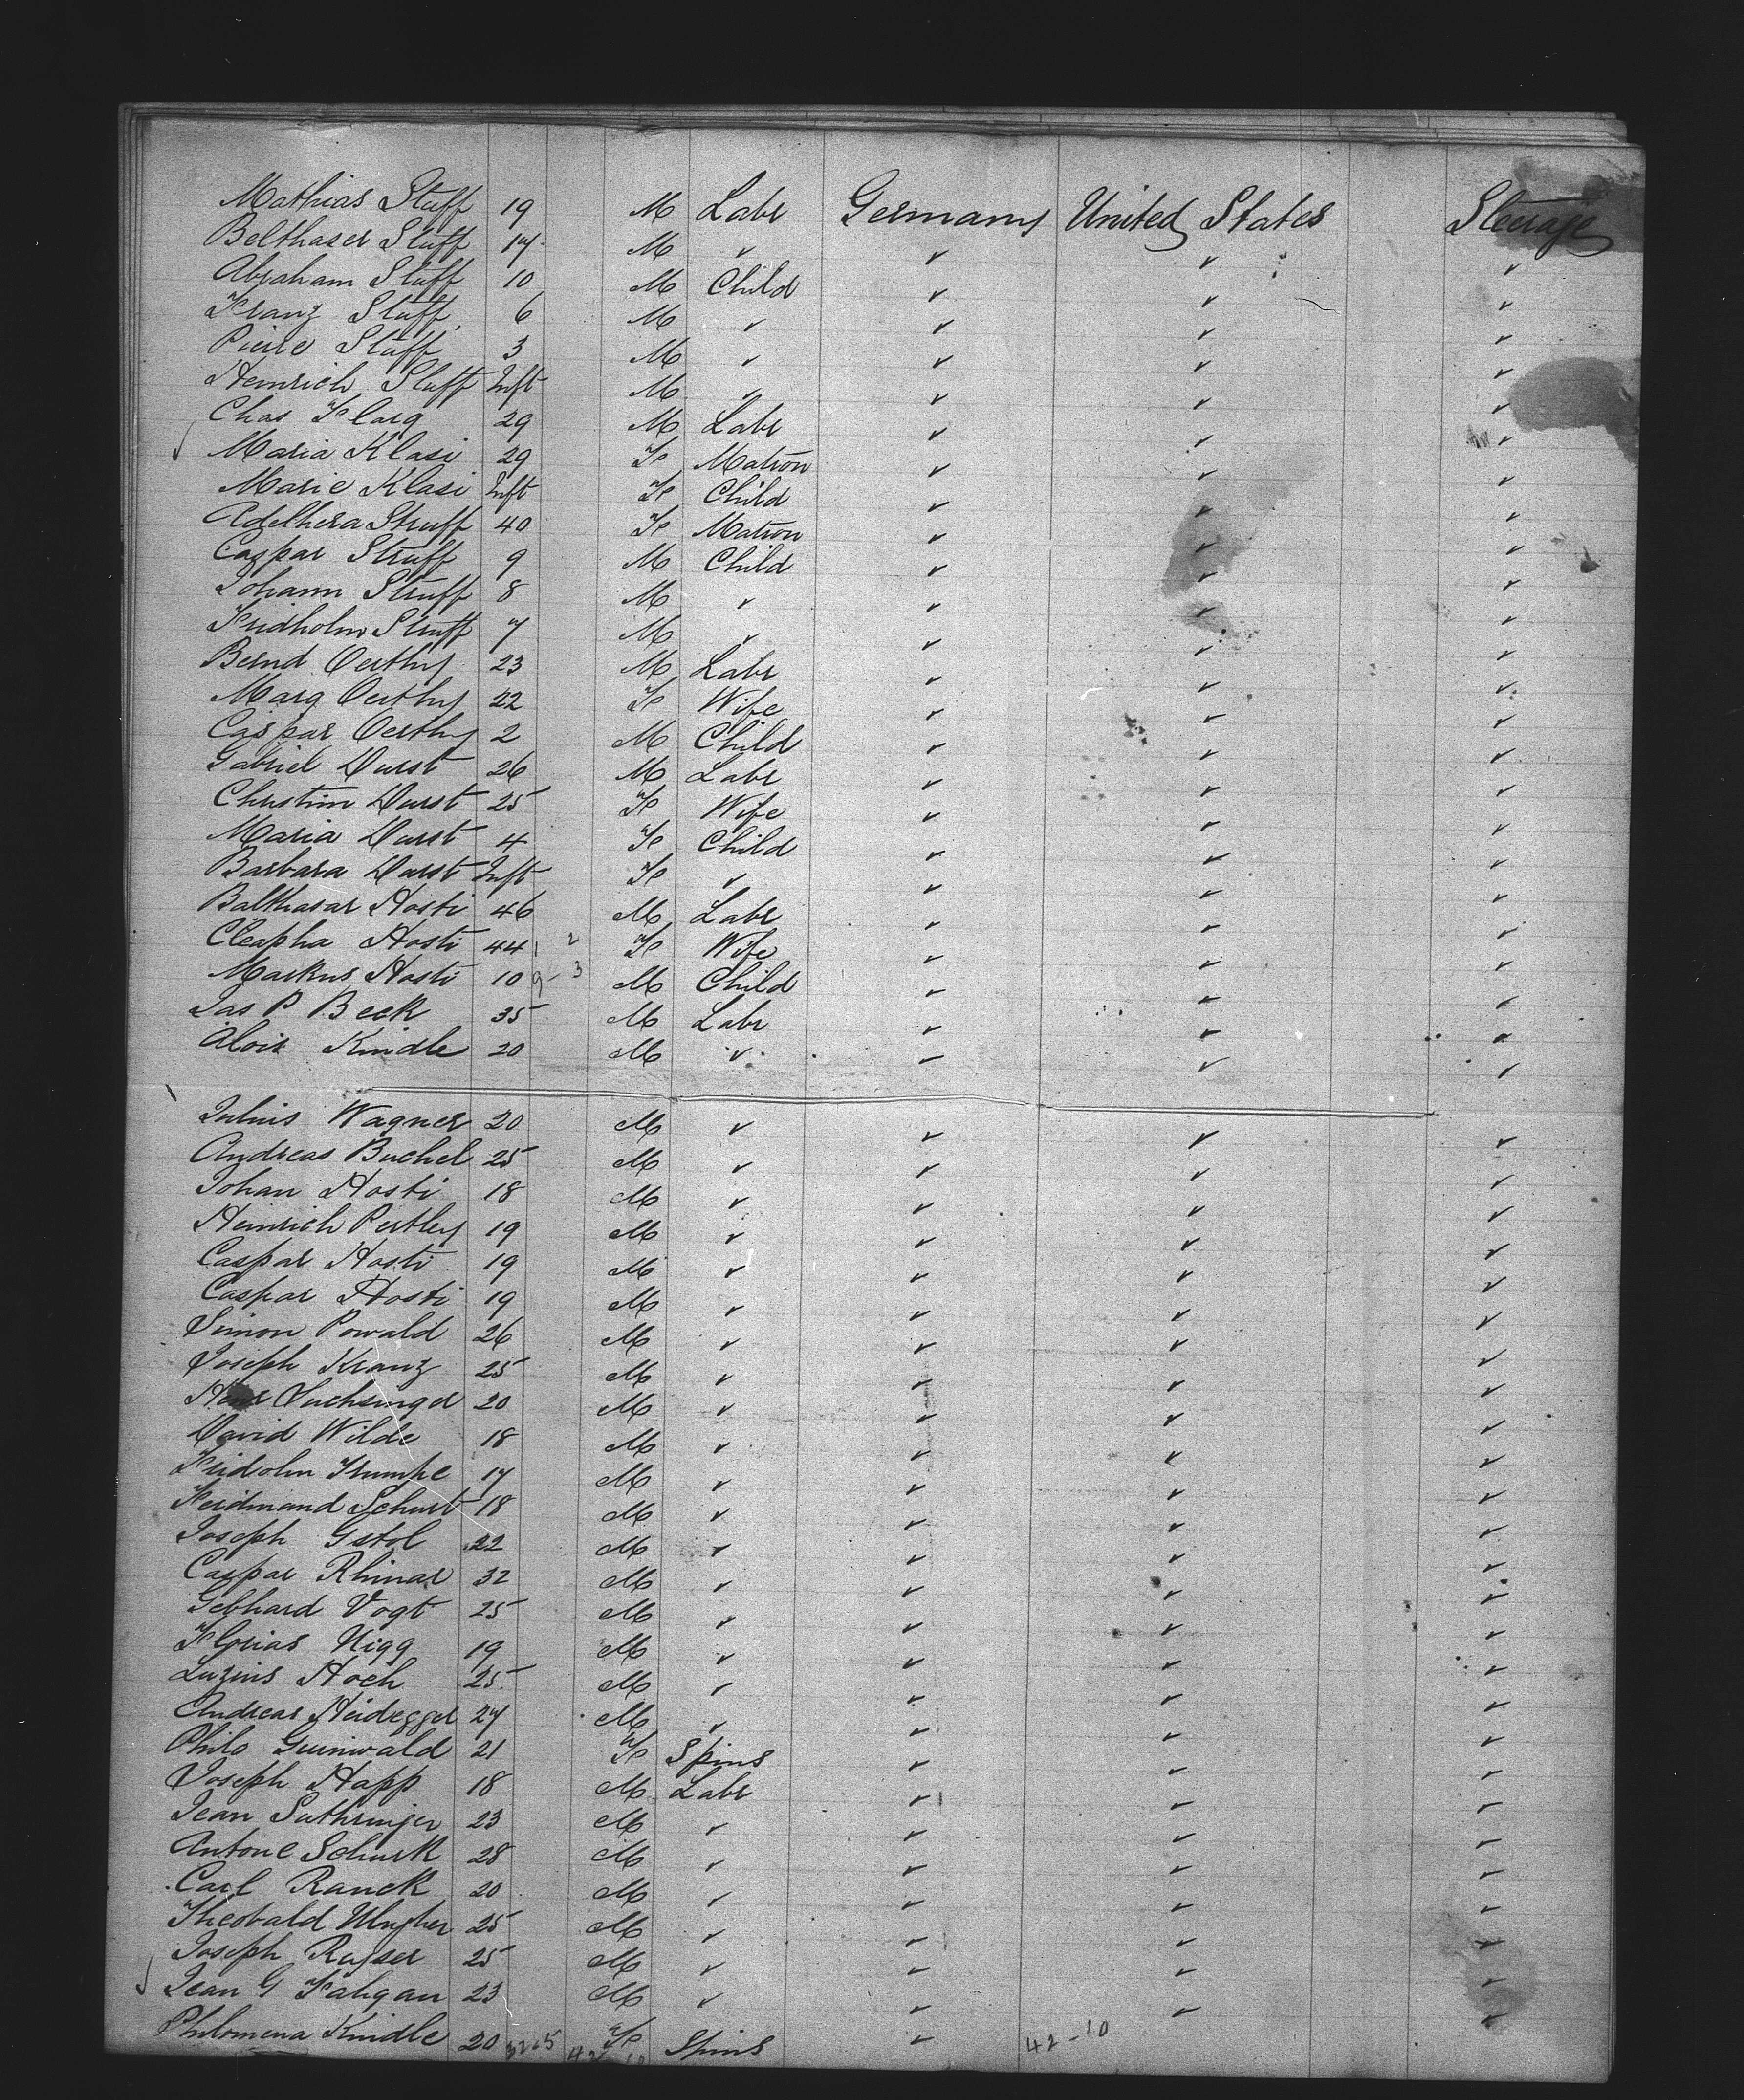 Mathias Stuff 19 M Labr Germany United States Steerage
Belthaser Stuff 17 M ✓ ✓ ✓ ✓
Abraham Stuff 10 M Child ✓ ✓ ✓
Franz Stuff 6 M ✓ ✓ ✓ ✓
Pierre Stuff 3 M ✓ ✓ ✓ ✓
Heinrich Stuff Inft M ✓ ✓ ✓ ✓
Chas 29 M Labr ✓ ✓ ✓
Maria Klasi 29 F Matron ✓ ✓ ✓
Marie Klasi Inft F Child ✓ ✓ ✓
Struff 40 F Matron ✓ ✓ ✓
Caspar Struff 9 M Child ✓ ✓ ✓
Johann Struff 8 M ✓ ✓ ✓ ✓
Fridholm Struff 7 M ✓ ✓ ✓ ✓
Bernd Oerthy 23 M Labr ✓ ✓ ✓
Marg Oerthy 22 F Wife ✓ ✓ ✓
Caspar Oerthy 2 M Child ✓ ✓ ✓
Gabriel Durst 26 M Labr ✓ ✓ ✓
Christin Durst 25 F Wife ✓ ✓ ✓
Maria Durst 4 F Child ✓ ✓ ✓
Barbara Durst Inft F ✓ ✓ ✓ ✓
Balthasar Hosti 46 M Labr ✓ ✓ ✓
Cleapha Hosti 44 F Wife ✓ ✓ ✓
Markus Hosti 10 M Child ✓ ✓ ✓
Jas P Beck 35 M Labr ✓ ✓ ✓
Alois Kindle 20 M ✓ ✓ ✓ ✓
Julius Wagner 20 M ✓ ✓ ✓ ✓
Andreas Buchel 25 M ✓ ✓ ✓ ✓
Johan Hosti 18 M ✓ ✓ ✓ ✓
Heinrich Pertley 19 M ✓ ✓ ✓ ✓
Caspar Hosti 19 M ✓ ✓ ✓ ✓
Caspar Hosti 19 M ✓ ✓ ✓ ✓
Simon Powald 26 M ✓ ✓ ✓ ✓
Joseph Kranz 25 M ✓ ✓ ✓ ✓
Luchsinger 20 M ✓ ✓ ✓ ✓
David Wilde 18 M ✓ ✓ ✓ ✓
Fridolin Trumpe 17 M ✓ ✓ ✓ ✓
Ferdinand Schurt 18 M ✓ ✓ ✓ ✓
Joseph Gstol 22 M ✓ ✓ ✓ ✓
Caspar Rhinar 32 M ✓ ✓ ✓ ✓
Gebhard Vogt 25 M ✓ ✓ ✓ ✓
Florias Nigg 19 M ✓ ✓ ✓ ✓
Luzius Hoch 25 M ✓ ✓ ✓ ✓
Andreas Heidegger 27 M ✓ ✓ ✓ ✓
Philo Guinwald 21 F Spins ✓ ✓ ✓
Joseph Happ 18 M Labr ✓ ✓ ✓
Jean Suthringer 23 M ✓ ✓ ✓ ✓
Antone Schurk 28 M ✓ ✓ ✓ ✓
Carl Ranck 20 M ✓ ✓ ✓ ✓
Theobald 25 M ✓ ✓ ✓ ✓
Joseph Rayser 25 M ✓ ✓ ✓ ✓
Jean G Fahgan 23 M ✓ ✓ ✓ ✓
Philomena Kindle 20 F Spins ✓ 42-10